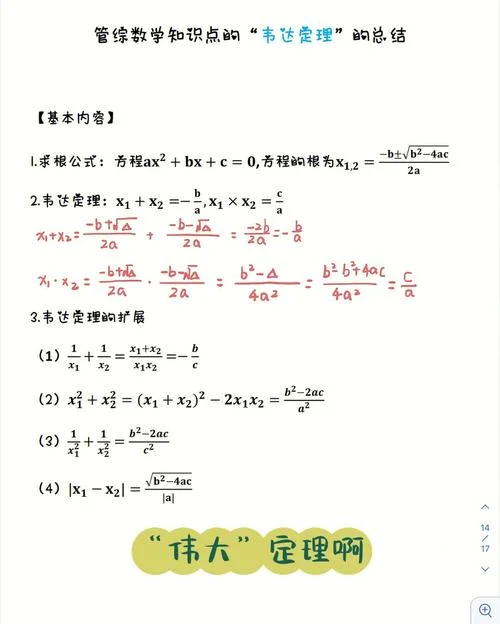 管综数学知识点的“韦达定理”的总结
【基本内容】
1.求根公式：方程ax²+bx+c=0,方程的根为x₁,₂=(-b±√(b²-4ac))/(2a)
2.韦达定理：x₁+x₂=-b/a,x₁×x₂=c/a
x₁+x₂=(-b+√Δ)/(2a)+(-b-√Δ)/(2a)=(-2b)/(2a)=-b/a
x₁·x₂=(-b+√Δ)/(2a)·(-b-√Δ)/(2a)=(b²-Δ)/(4a²)=(b²-b²+4ac)/(4a²)=c/a
3.韦达定理的扩展
（1）1/x₁+1/x₂=(x₁+x₂)/(x₁x₂)=-b/c
（2）x₁²+x₂²=(x₁+x₂)²-2x₁x₂=(b²-2ac)/a²
（3）1/x₁²+1/x₂²=(b²-2ac)/c²
（4）|x₁-x₂|=√(b²-4ac)/|a|
“伟大”定理啊
14
/
17